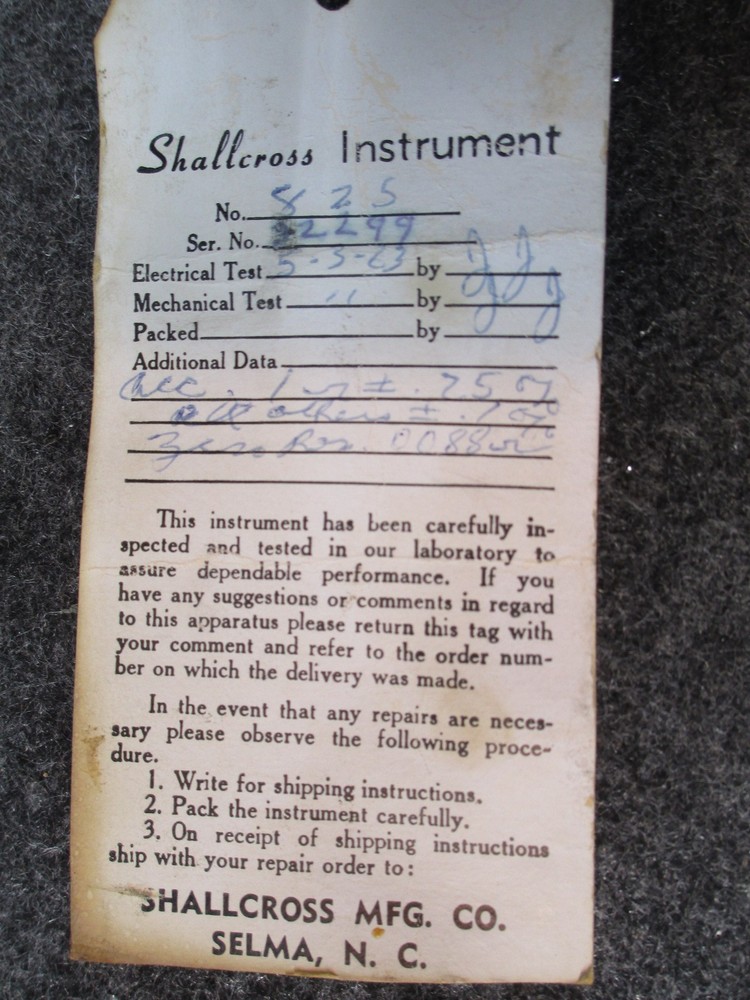 Shallcross Instrument
No. 825
Ser. No. 2299
Electrical Test 5-3-63 by JJ
Mechanical Test " by JJ
Packed by
Additional Data
Acc. 1 ± .25 %
all others ± .1 %
Zero Res. .0088
This instrument has been carefully in-
spected and tested in our laboratory to
assure dependable performance. If you
have any suggestions or comments in regard
to this apparatus please return this tag with
your comment and refer to the order num-
ber on which the delivery was made.
In the event that any repairs are neces-
sary please observe the following proce-
dure.
1. Write for shipping instructions.
2. Pack the instrument carefully.
3. On receipt of shipping instructions
ship with your repair order to:
SHALLCROSS MFG. CO.
SELMA, N. C.